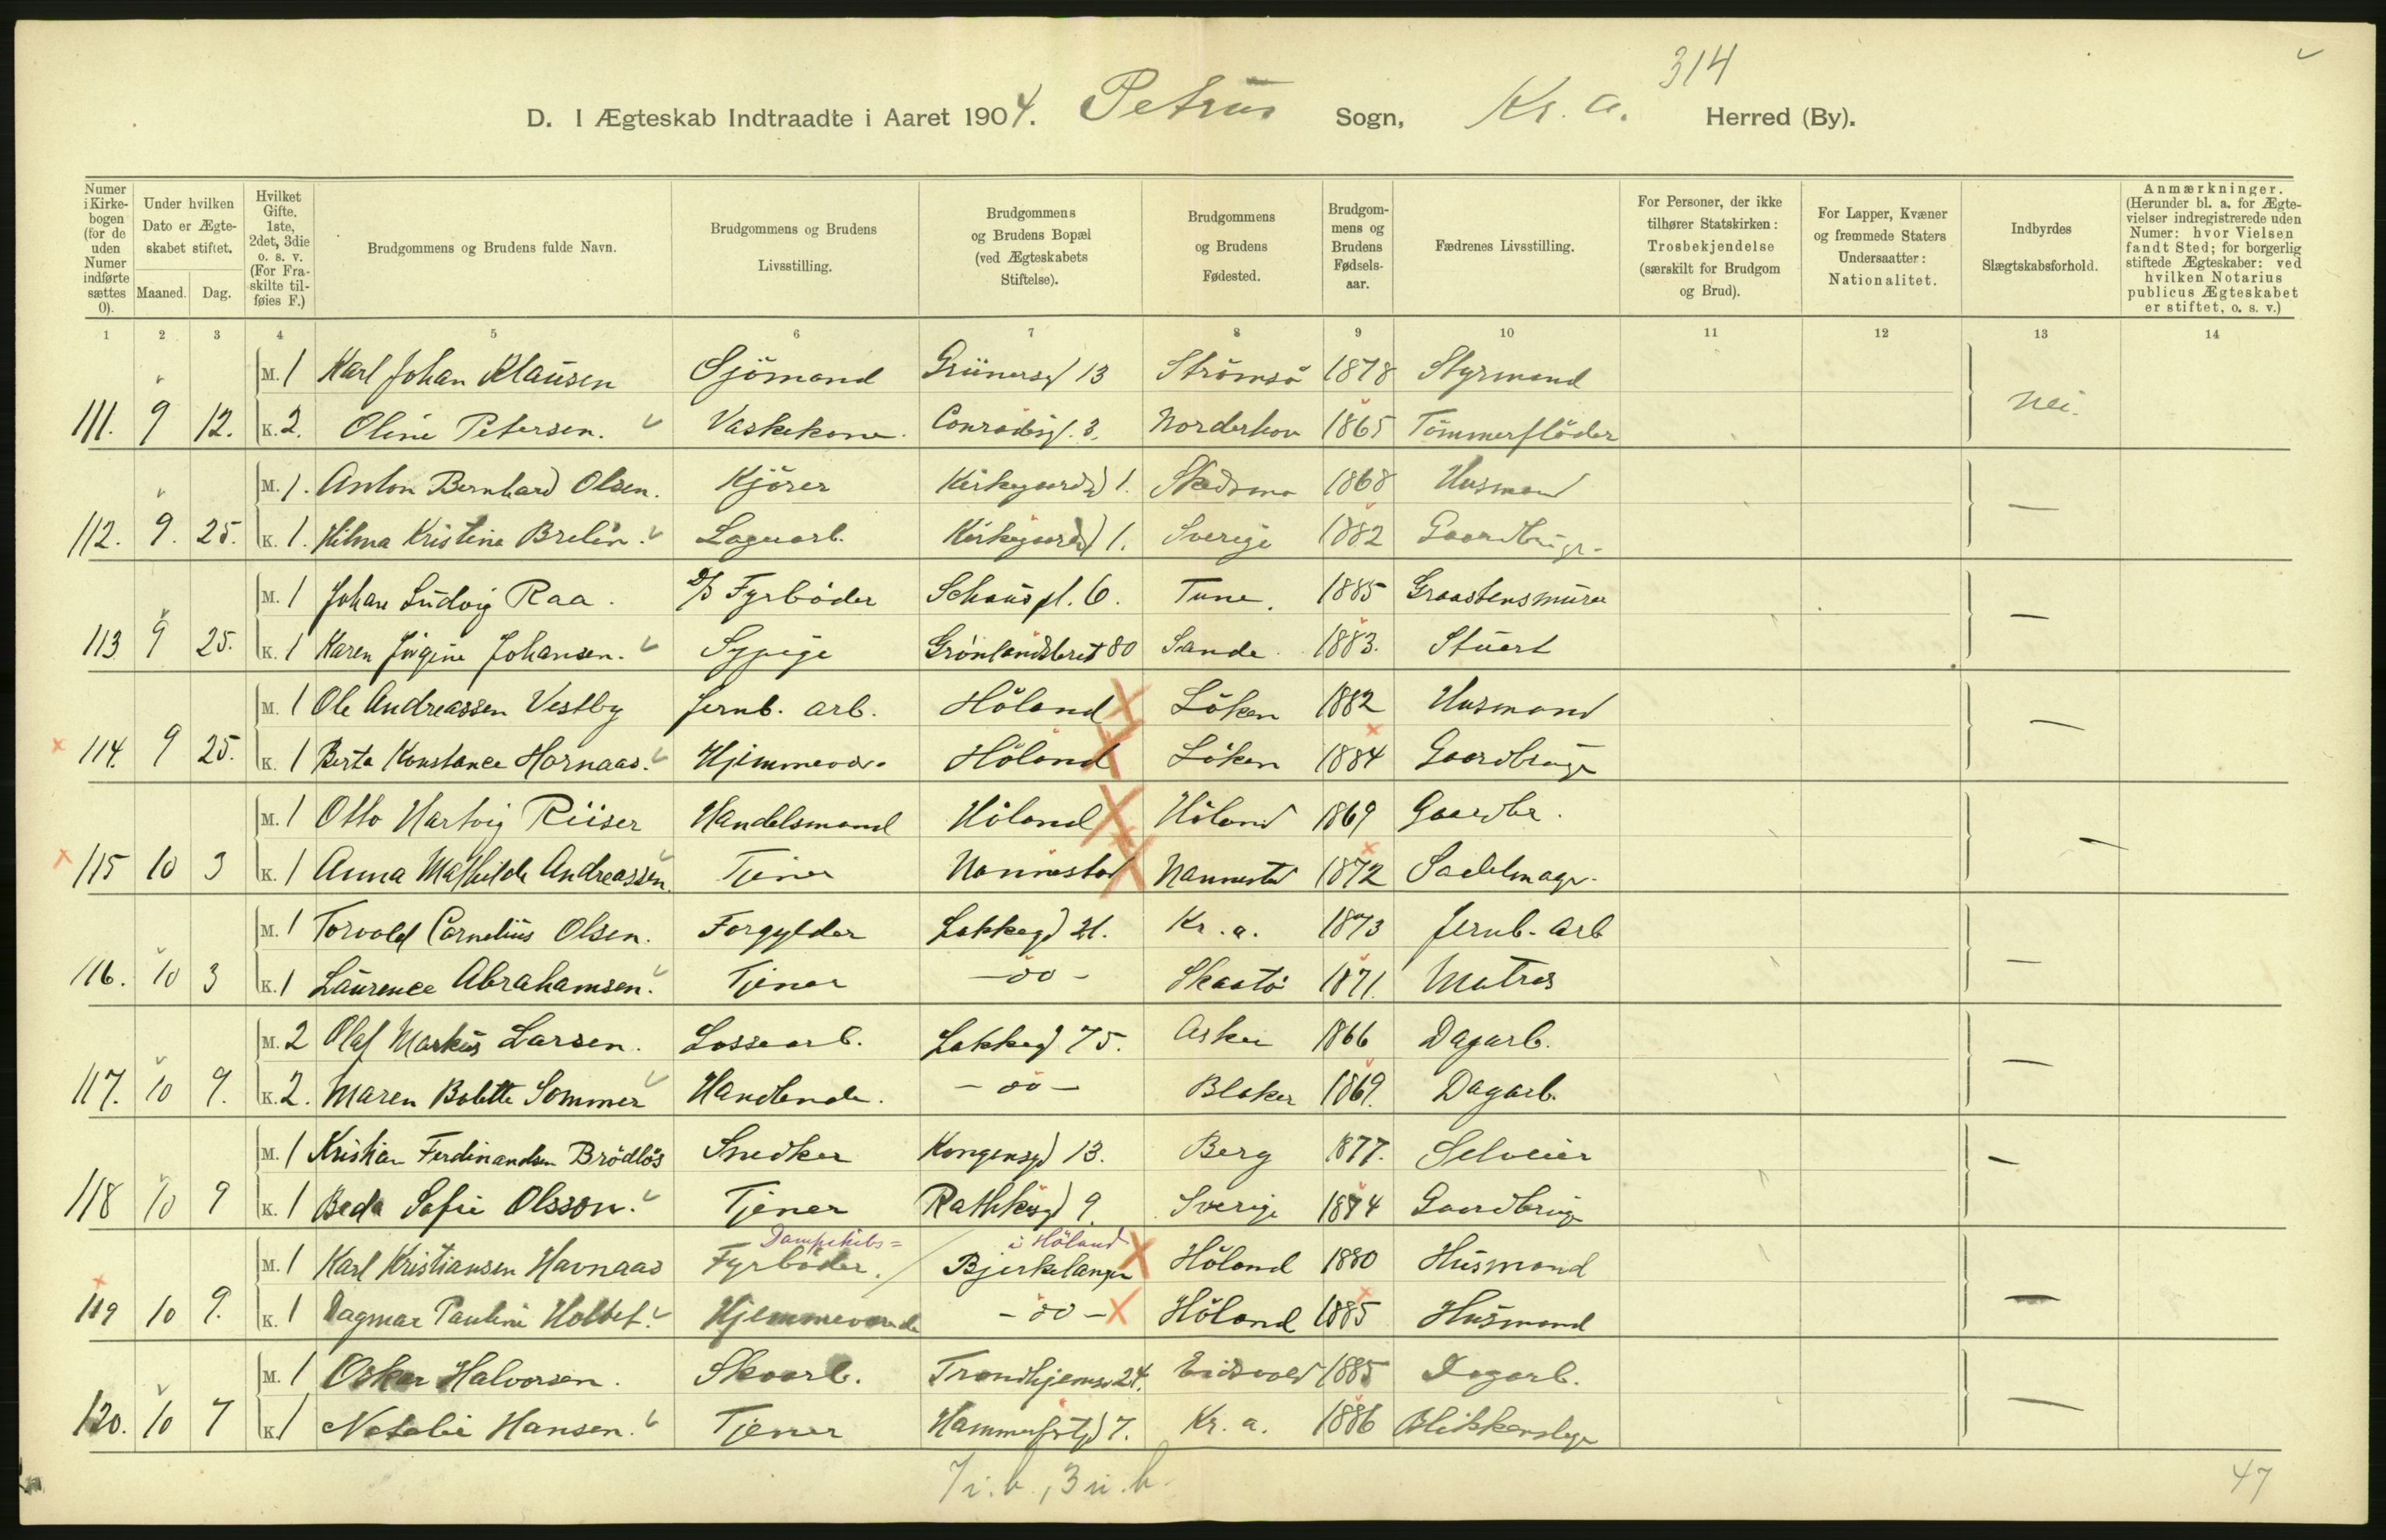 314
D. I Ægteskab Indtraadte i Aaret 1904. Petrus Sogn, Kr. a. Herred (By).
Numer i Kirkebogen (for de uden Numer indførte sættes 0).
Under hvilken Dato er Ægteskabet stiftet.
Maaned. Dag.
Hvilket Gifte. 1ste, 2det, 3die o. s. v. (For Fraskilte tilføies F.)
Brudgommens og Brudens fulde Navn.
Brudgommens og Brudens Livsstilling.
Brudgommens og Brudens Bopæl (ved Ægteskabets Stiftelse).
Brudgommens og Brudens Fødested.
Brudgommens og Brudens Fødselsaar.
Fædrenes Livsstilling.
For Personer, der ikke tilhører Statskirken: Trosbekjendelse (særskilt for Brudgom og Brud).
For Lapper, Kvæner og fremmede Staters Undersaatter: Nationalitet.
Indbyrdes Slægtskabsforhold.
Anmærkninger. (Herunder bl. a. for Ægtevielser indregistrerede uden Numer: hvor Vielsen fandt Sted; for borgerlig stiftede Ægteskaber: ved hvilken Notarius publicus Ægteskabet er stiftet, o. s. v.)
1 2 3 4 5 6 7 8 9 10 11 12 13 14
M. 1 Karl Johan Klausen Sjömand Grünersg 13 Strömsö 1878 Styrmand
111. 9 12. K. 2. Oline Petersen. Vaskekone. Conradisg. 3. Norderhov 1865 Tömmerflöder Nei.
M. 1. Anton Bernhard Olsen. Kjörer Kirkegaardsg 1. Skedsmo 1868 Husmand
112. 9. 25. K. 1. Hilma Kristina Brelin. Laguarb. Kirkegaardsg 1. Sverige 1882 Gaardbrugr. —
M. 1 Johan Ludvig Raa. D/S Fyrböder Schous pl. 6. Tune. 1885 Graastensmurer
113 9 25. K. 1 Karen Jörgine Johansen. Sypige Grönlandsleret 80 Sande. 1883. Stuert —
M. 1 Ole Andreassen Vestby Jernb. arb. Höland Löken 1882 Husmand
114. 9 25. K. 1 Berta Konstance Hornaas. Hjemmevær. Höland Löken 1884 Gaardbrug —
M. 1 Otto Hartvig Riiser Handelsmand Höland Höland 1869 Gaardbr.
115 10 3 K. 1 Anna Mathilde Andreassen. Tjener Nannestad Nannestad 1872 Sadelmagr. —
M. 1 Torvald Cornelius Olsen. Forgylder Lakkegd 21. Kr. a. 1873 Jernb. arb
116. 10 3 K. 1 Laurence Abrahamsen. Tjener — do — Skaatö 1871. Matros —
M. 2 Olaf Markus Larsen. Lossearb. Lakkegd 75. Asker 1866 Dagarb.
117. 10 9. K. 2. Maren Bolette Sommer Handlende. — do — Blaker 1869. Dagarb. —
M. 1 Kristian Ferdinandsen Brödlös Snedker Kongensgd 13. Berg 1877. Selveier
118 10 9 K. 1 Beda Sofie Olsson. Tjener Rathkesgd 9. Sverige 1874 Gaardbrug —
Dampskibs= i Höland
M. 1 Karl Kristiansen Havnaas Fyrböder. Bjerkelangen Höland 1880 Husmand
119 10 9. K. 1 Dagmar Pauline Holtet. Hjemmeværende — do — Höland 1885 Husmand —
M. 1 Oskar Halvorsen. Skoarb. Trondhjemsv 24. Eidsvold 1885 Dagarb.
120. 10 7 K. 1 Natalie Hansen. Tjener Hammerfstgd 7. Kr. a. 1886 Blikkenslager —
7 i. b., 3 u. b.
47